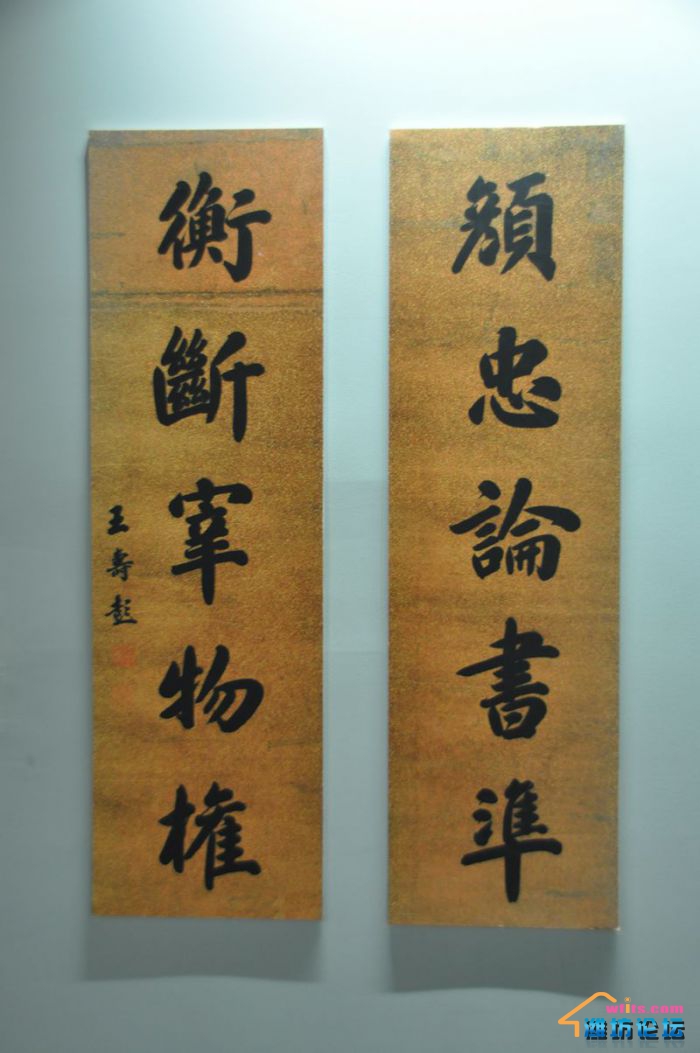 顏忠論書準
衡斷宰物權
王壽彭
wfits.com
潍坊论坛